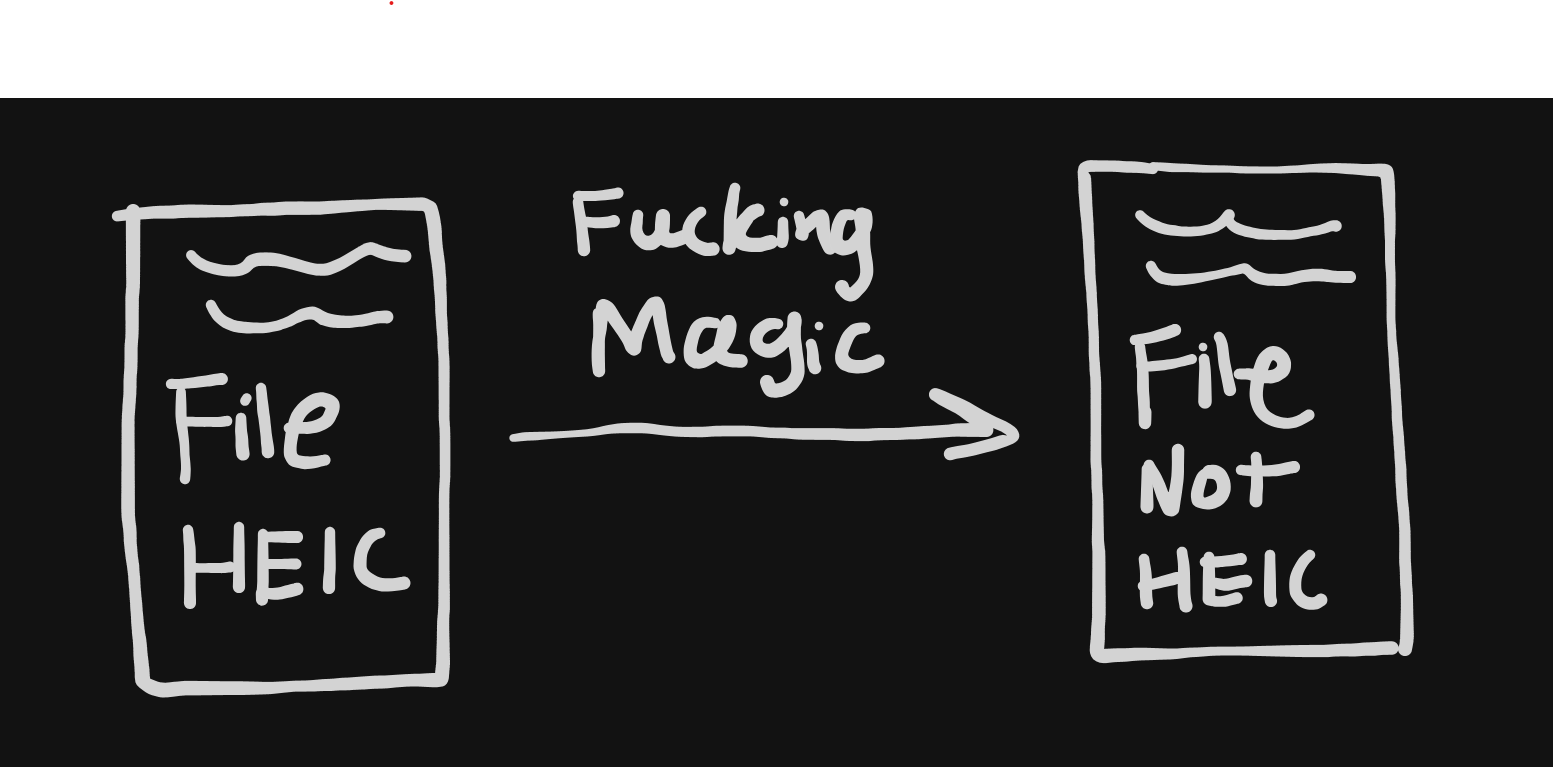 File
HEIC
Fucking
Magic
File
Not
HEIC